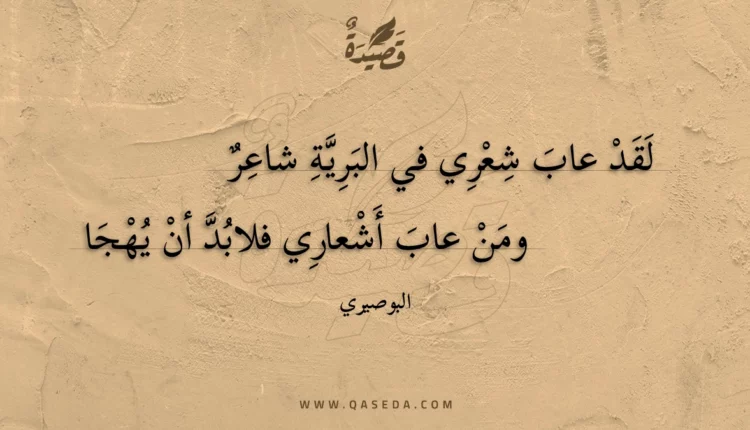 قَصِيدَةٌ
لَقَدْ عابَ شِعْرِي في البَرِيَّةِ شاعِرٌ
ومَنْ عابَ أَشْعارِي فلابُدَّ أنْ يُهْجَا
البوصيري
WWW.QASEDA.COM